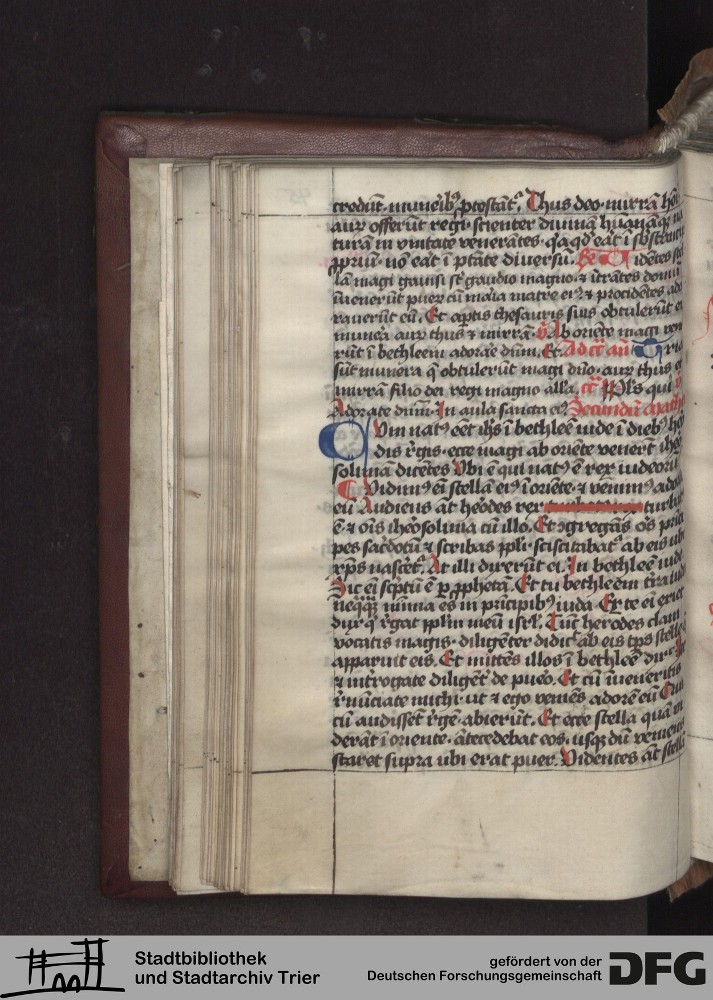 credūt· munerib⁹ ptestāt᷑. Thus deo· mirrā
aurū offerūt regi· scienter divinā humanāq̄
turā in unitate venerātes· q̄a qd̕ eāt ī substancijs
ꝓpriū· nō eāt ī ptāte diversū. R̄ Uidētes
lā magi gavisi sūt gaudio magno· ⁊ ītrātes domū
īvenerūt puerū cū maria matre ei⁹ ⁊ procidētes ado
raverūt eū. Et aptis thesauris suis obtulerūt ei
munera aurū thus ⁊ mirrā. V̄ Ab oriēte magi ven
rūt ī bethleem adorare dūm. Et. Ad cā añ Tria
sūt munera q̄ obtulerūt magi dn̄o· aurū thus et
mirrā filio dei regi magno alla. Ps qui
Adorate dnm· In aula sancta ei⁹ Secundū math
Cum nat⁹ eēt ihs ī bethleē iude ī dieb⁹
dis r̄gis· ecce magi ab oriēte venerūt
solimā dicētes Ubi ē qui nat⁹ ē rex iudeorū
Vidim⁹ eī stellā ei⁹ ī oriēte· ⁊ venim⁹ ado
eū Audiens āt herodes rex turba
ē ⁊ oīs iherosolima cū illo. Et ꝯgregās oēs prīci
pes sacdotū ⁊ scribas ppli· sciscitabat᷑ ab eis ubi
xps nascet᷑. At illi dixerūt ei. In bethleē iude
Sic eī scptū ē p ꝓphetā. Et tu bethleem terra iuda
neq̄q̄ minima es in pricipib⁹ iuda· Ex te eī exiet
dux q̄ r̄gat pplm meū isrl̄. Tūc herodes clam
vocatis magis· diligēter didic̄ ab eis tps stelle
apparuit eis. Et mittēs illos ī bethleē dixit
⁊ īterrogate diligēt᷑ de puero. Et cū īveneritis
r̄nūciate michi· ut ⁊ ego veniēs adorē eū Qui
cū audissēt r̄gē· abierūt. Et ecce stella quā vi
derāt ī oriente· ātecedebat eos· usq̄ dū veniens
staret supra ubi erat puer. Videntes āt stellā
Stadtbibliothek
und Stadtarchiv Trier
gefördert von der
Deutschen Forschungsgemeinschaft
DFG